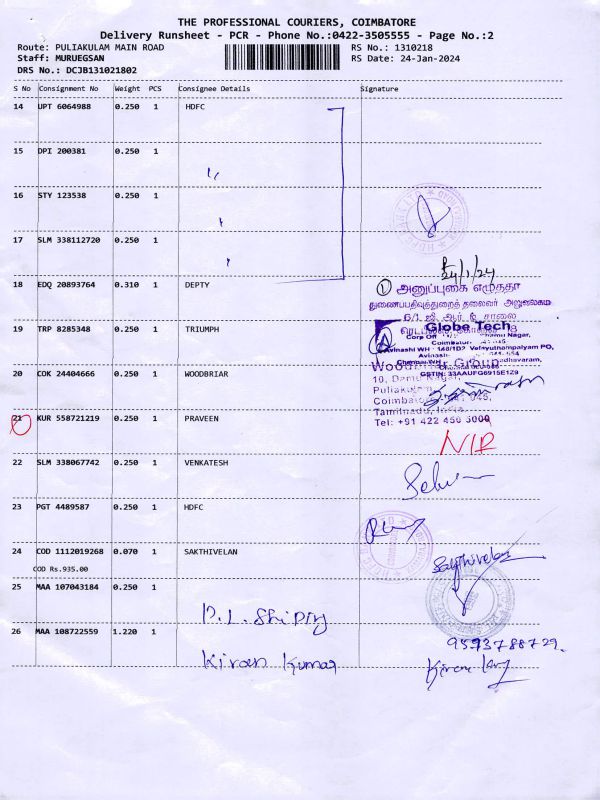 THE PROFESSIONAL COURIERS, COIMBATORE
Delivery Runsheet - PCR - Phone No.:0422-3505555 - Page No.:2
Route: PULIAKULAM MAIN ROAD RS No.: 1310218
Staff: MURUEGSAN RS Date: 24-Jan-2024
DRS No.: DCJB131021802
S No Consignment No Weight PCS Consignee Details Signature
14 UPT 6064988 0.250 1 HDFC
15 DPI 200381 0.250 1
16 STY 123538 0.250 1
17 SLM 338112720 0.250 1
24/1/24
18 EDQ 20893764 0.310 1 DEPTY
1 அனுப்புகை எழுத்தர்
துணைப்பதிவுத்துறைத் தலைவர் அலுவலகம்
19 TRP 8285348 0.250 1 TRIUMPH
Globe Tech
Corp Off Nagar,
Coimbatore
Avinashi WH : 148/1D7 Velayuthampalayam PO,
GSTIN: 33AAUFG6915E129
20 COK 24404666 0.250 1 WOODBRIAR
Woodbriar Group
10, Damu Nagar,
Puliakulam
Coimbatore 045,
Tamilnadu, India
Tel: +91 422 450 5000
21 KUR 558721219 0.250 1 PRAVEEN
N/R
22 SLM 338067742 0.250 1 VENKATESH
23 PGT 4489587 0.250 1 HDFC
24 COD 1112019268 0.070 1 SAKTHIVELAN
Sakthivelan
COD Rs.935.00
25 MAA 107043184 0.250 1
26 MAA 108722559 1.220 1
Kiran Kumar